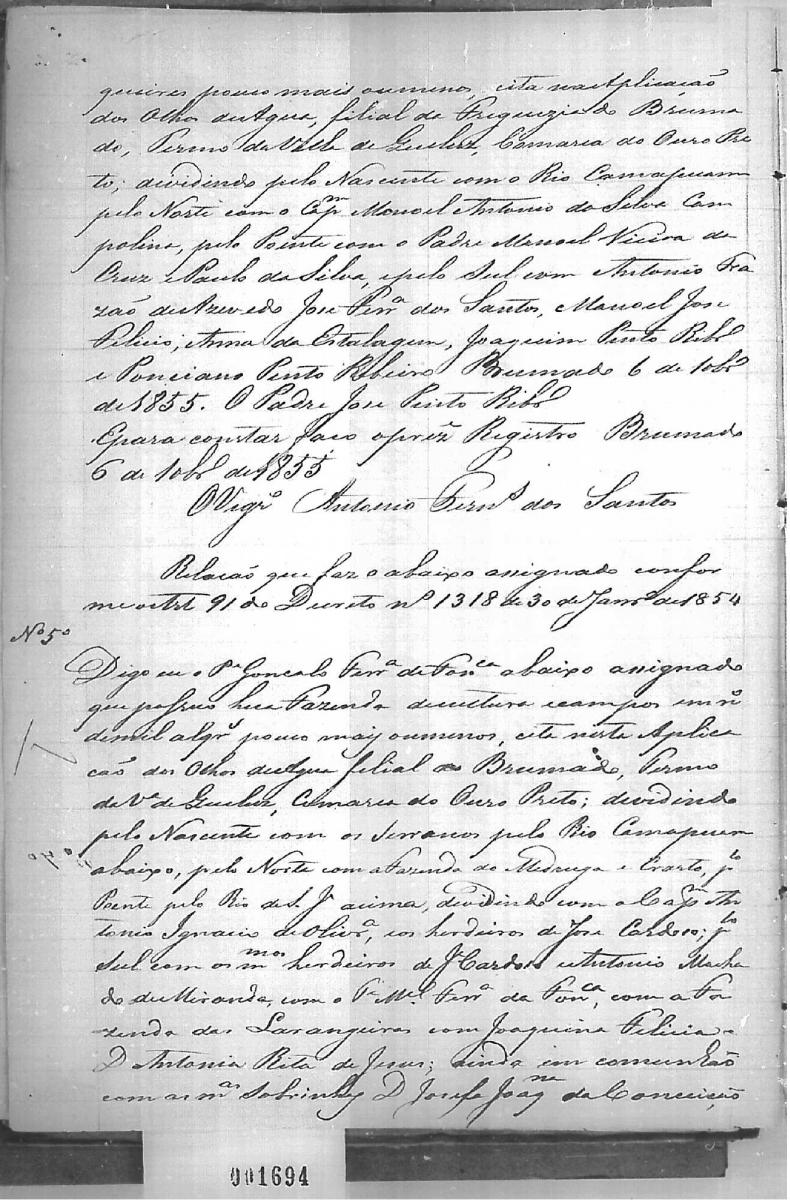 queires pouco mais oumenos, cita na Aplicação
dos Olhos de Agua, filial da Freguezia do Bruma
do, Termo da Villa de Queluz, Comarca do Ouro Pre
to; dividindo pelo Nascente com o Rio Camapuam
pelo Norte com o Capm Manoel Antonio da Silva Cam
polina, pelo Poente com o Padre Manoel Vieira da
Cruz e Paulo da Silva, epelo Sul com Antonio Fra
zaõ de Azevedo Jose Ferra dos Santos, Manoel Jose
Felicio; Anna da Estalagem, Joaquim Pinto Ribro
e Ponciano Pinto Ribeiro Brumado 6 de 10bro
de 1855. O Padre Jose Pinto Ribro
Epara constar faco o prez Registro Brumado
6 de 10bro de 1855
O Vigro Antonio Ferns dos Santos
Relacaõ que faz o abaixo assignado confor
me o Art 91 do Decreto nº 1318 de 30 de Janro de 1854
Nº 5º
Digo eu o Pe Goncalo Ferra de Fonca abaixo assignado
que possuo hua Fazenda de cultura e campos em nº
de mil alqrs pouco mais oumenos, cita nesta Aplica
cão dos Olhos de Agua filial do Brumado, Termo
da Va de Queluz, Comarca do Ouro Preto; dividindo
pelo Nascente com os Serranos pelo Rio Camapuam
abaixo, pelo Norte com a Fazenda do Medruga e Crasto, plo
Poente pelo Rio de S. Je acima, dividindo com o Capm An
tonio Ignacio de Olivra, e os herdeiros de Jose Cardoso; plo
Sul com os mmos herdeiros de Je Cardoso e Antonio Macha
do de Miranda, com o Pe Mel Ferra da Fonca, com a Fa
zenda das Larangeiras com Joaquina Felicia e
D Antonia Rita de Jesus; ainda em comunhão
com as mas Sobrinhas D Josefa Joaqna da Conceição
001694